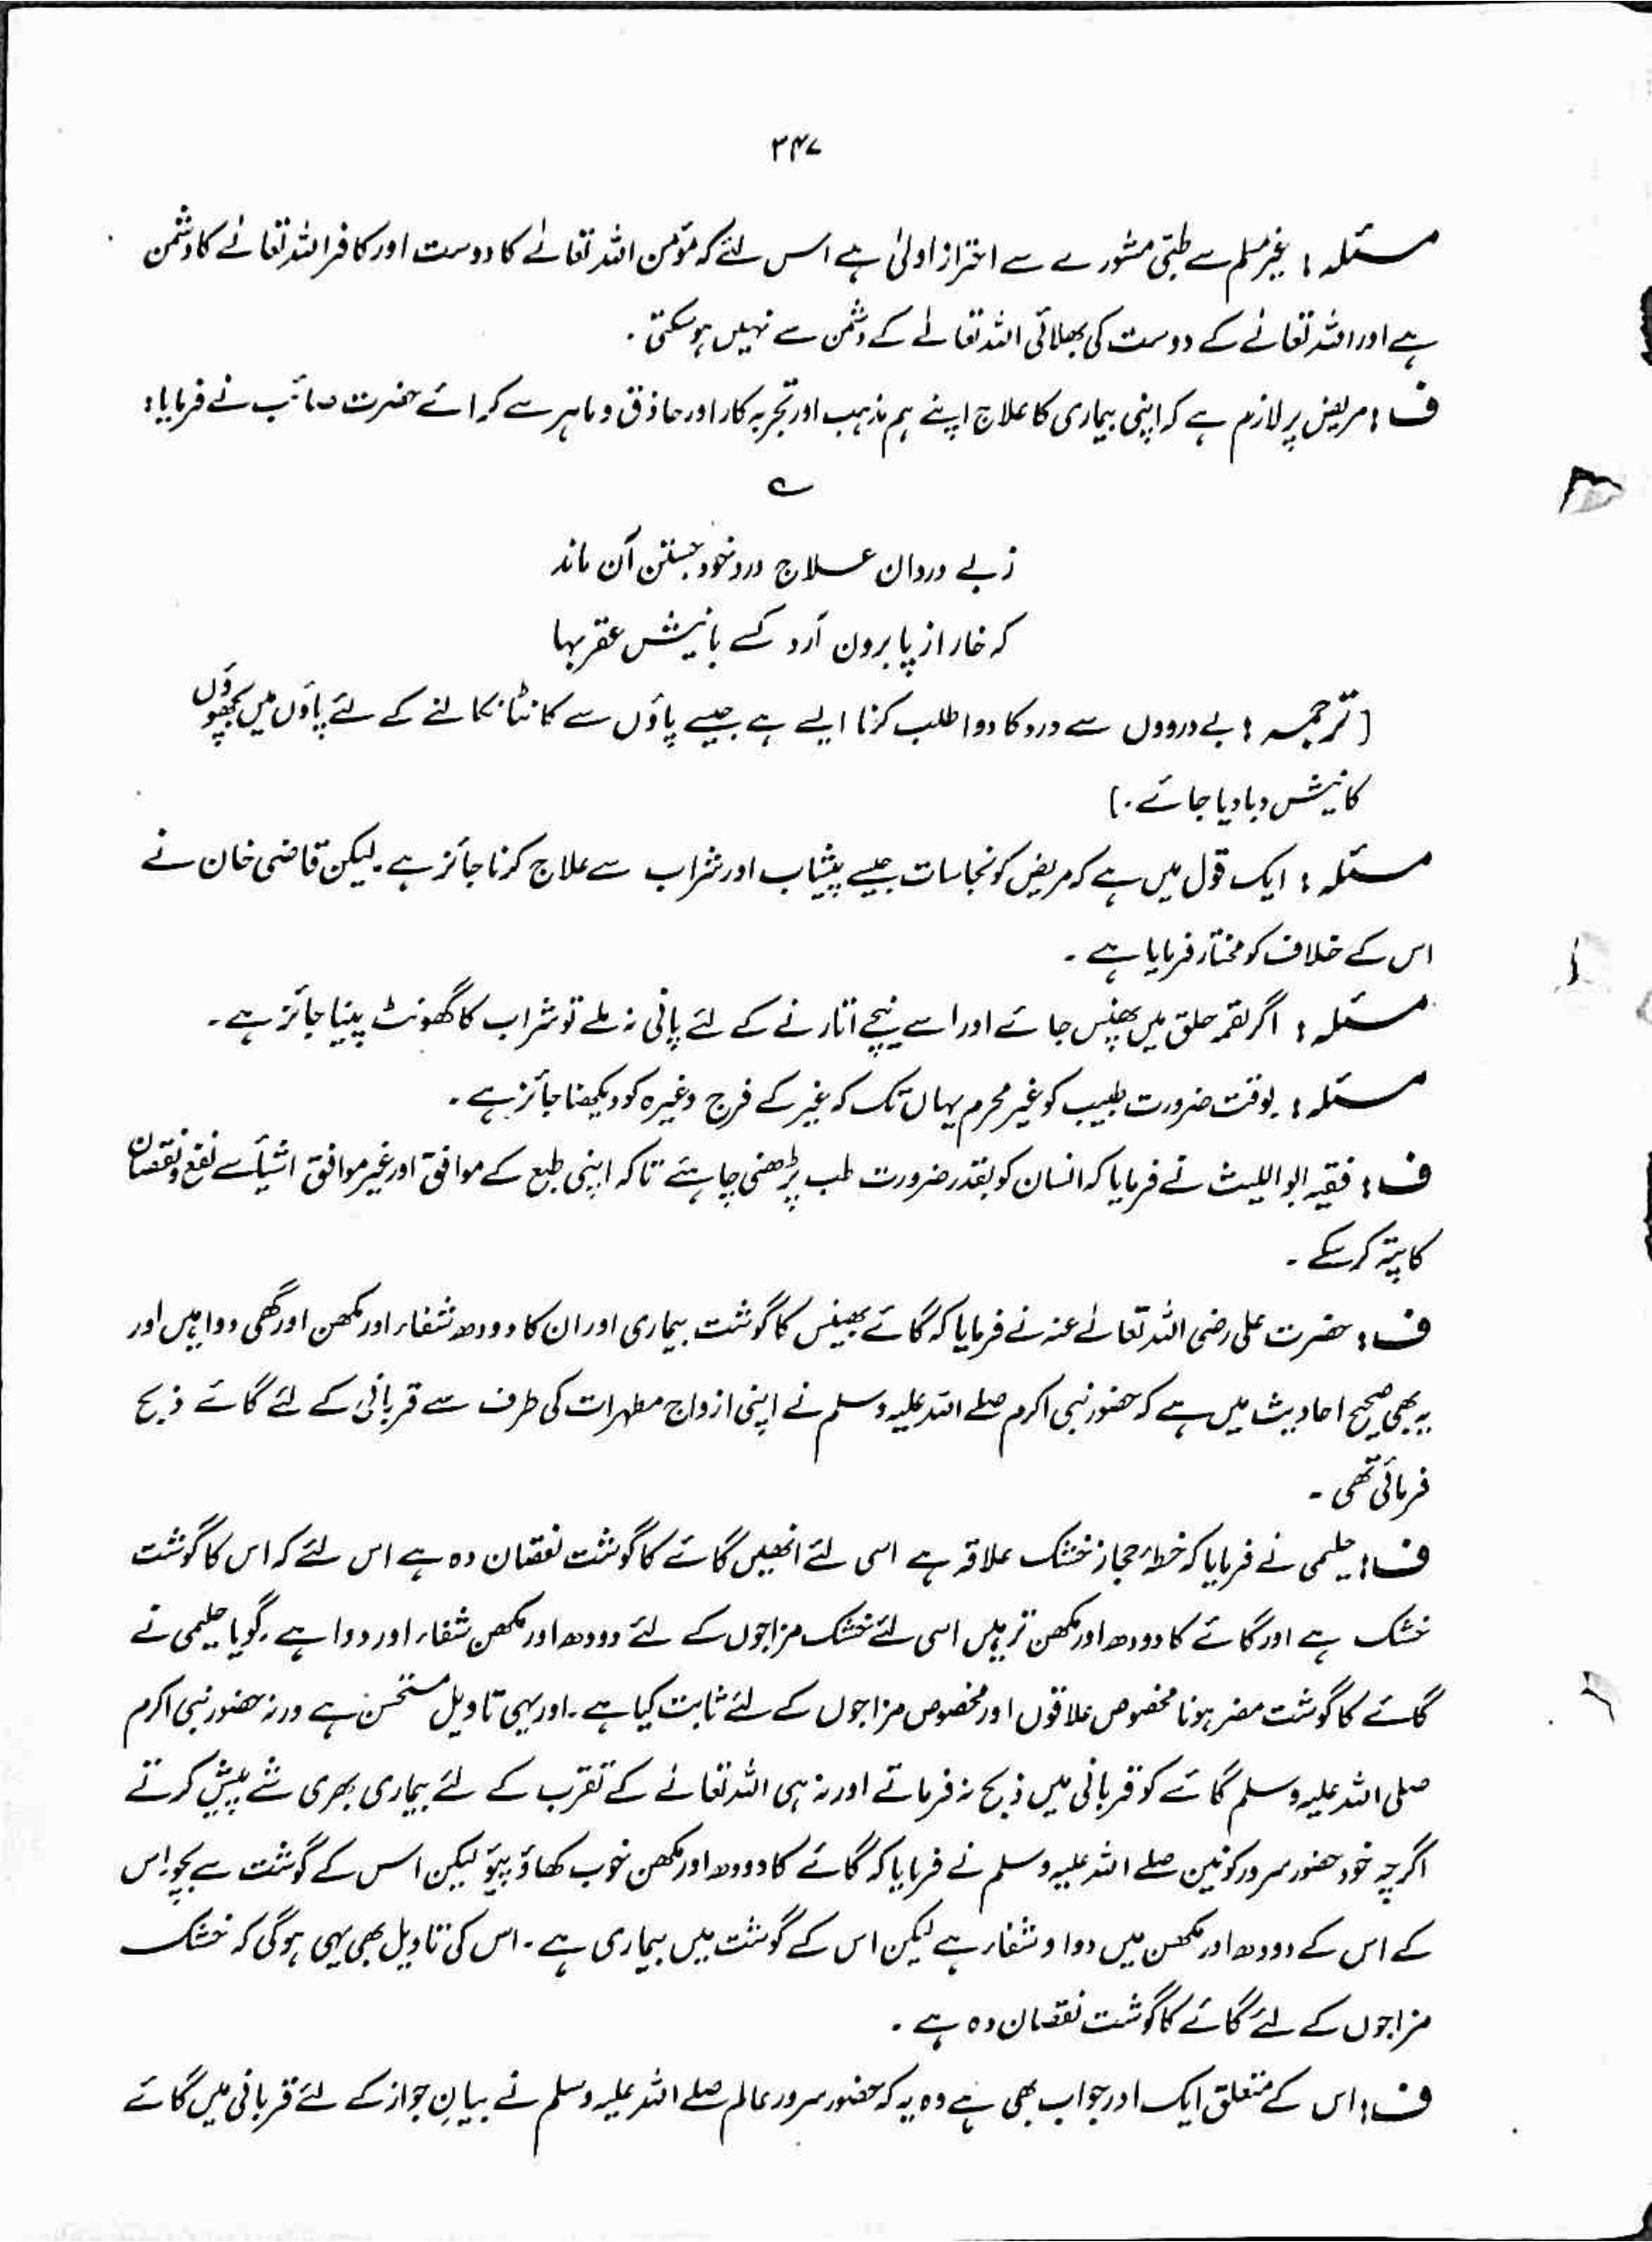 ۲۴۷
مسئلہ : غیر مسلم سے طبّی مشورے سے احتراز اولیٰ ہے اس لئے کہ مؤمن اللہ تعالےٰ کا دوست اور کافر اللہ تعالےٰ کا دشمن
ہے اور اللہ تعالےٰ کے دوست کی بھلائی اللہ تعالےٰ کے دشمن سے نہیں ہو سکتی ۔
ف : مریض پر لازم ہے کہ اپنی بیماری کا علاج اپنے ہم مذہب اور تجربہ کار اور حاذق و ماہر سے کرائے حضرت صائب نے فرمایا :
ے
زبے دردان علاج درد خود جستن آن ماند
کہ خار از پا برون آرد کسے با نیش عقربہا
[ ترجمہ : بے دردوں سے درد کا دوا طلب کرنا ایسے ہے جیسے پاؤں سے کانٹا نکالنے کے لئے پاؤں میں بچھوؤں
کا نیش دبا دیا جائے ۔ ]
مسئلہ : ایک قول میں ہے کہ مریض کو نجاسات جیسے پیشاب اور شراب سے علاج کرنا جائز ہے ۔ لیکن قاضی خان نے
اس کے خلاف کو مختار فرمایا ہے ۔
مسئلہ : اگر لقمہ حلق میں پھنس جائے اور اسے نیچے اتارنے کے لئے پانی نہ ملے تو شراب کا گھونٹ پینا جائز ہے ۔
مسئلہ : بوقت ضرورت طبیب کو غیر محرم یہاں تک کہ غیر کے فرج وغیرہ کو دیکھنا جائز ہے ۔
ف : فقیہ ابو اللیث نے فرمایا کہ انسان کو بقدر ضرورت طب پڑھنی چاہئے تاکہ اپنی طبع کے موافق اور غیر موافق اشیأ سے نفع و نقصان
کا پتہ کر سکے ۔
ف : حضرت علی رضی اللہ تعالےٰ عنہ نے فرمایا کہ گائے بھینس کا گوشت بیماری اور ان کا دودھ شفاء اور مکھن اور گھی دوا ہیں اور
یہ بھی صحیح احادیث میں ہے کہ حضور نبی اکرم صلے اللہ علیہ وسلم نے اپنی ازواج مطہرات کی طرف سے قربانی کے لئے گائے ذبح
فرمائی تھی ۔
ف : حلیمی نے فرمایا کہ خطۂ حجاز خشک علاقہ ہے اسی لئے انھیں گائے کا گوشت نقصان دہ ہے اس لئے کہ اس کا گوشت
خشک ہے اور گائے کا دودھ اور مکھن تر ہیں اسی لئے خشک مزاجوں کے لئے دودھ اور مکھن شفاء اور دوا ہے ۔ گویا حلیمی نے
گائے کا گوشت مضر ہونا مخصوص علاقوں اور مخصوص مزاجوں کے لئے ثابت کیا ہے ۔ اور یہی تاویل مستحسن ہے ورنہ حضور نبی اکرم
صلی اللہ علیہ وسلم گائے کو قربانی میں ذبح نہ فرماتے اور نہ ہی اللہ تعالےٰ کے تقرب کے لئے بیماری بھری شے پیش کرتے
اگرچہ خود حضور سرور کونین صلے اللہ علیہ وسلم نے فرمایا کہ گائے کا دودھ اور مکھن خوب کھاؤ پیؤ لیکن اس کے گوشت سے بچو ۔ اس
کے اس کے دودھ اور مکھن میں دوا و شفاء ہے لیکن اس کے گوشت میں بیماری ہے ۔ اس کی تاویل بھی یہی ہوگی کہ خشک
مزاجوں کے لئے گائے کا گوشت نقصان دہ ہے ۔
ف : اس کے متعلق ایک اور جواب بھی ہے وہ یہ کہ حضور سرور عالم صلے اللہ علیہ وسلم نے بیانِ جواز کے لئے قربانی میں گائے